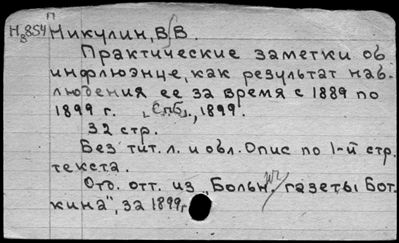 П
Н8854 Никулин, В.В.
Практические заметки об
инфлюэнце, как результат наб-
людения ее за время с 1889 по
1899 г. [Спб.], 1899.
32 стр.
Без тит. л. и обл. Опис по 1-й стр.
текста.
Отд. отт. из „Больн. газеты Бот-
кина", за 1899г